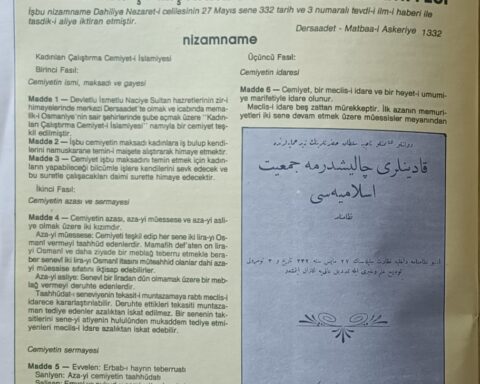 İşbu nizamname Dahiliye Nezaret-i celilesinin 27 Mayıs sene 332 tarih ve 3 numaralı tevdi-i ilm-i haberi ile
tasdik-i aliye iktiran etmiştir.
Dersaadet - Matbaa-i Askeriye 1332
nizamname
Kadınları Çalıştırma Cemiyet-i İslamiyesi
Birinci Fasıl:
Cemiyetin ismi, maksadı ve gayesi
Madde 1 — Devletlu İsmetlu Naciye Sultan hazretlerinin zir-i
himayelerinde merkezi Dersaadet'te olmak ve icabında mema-
lik-i Osmaniye'nin sair şehirlerinde şube açmak üzere "Kadın-
ları Çalıştırma Cemiyet-i İslamiyesi" namıyla bir cemiyet teş-
kil edilmiştir.
Madde 2 — İşbu cemiyetin maksadı kadınlara iş bulup kendi-
lerini namuskarane temin-i maişete alıştırarak himaye etmektir.
Madde 3 — Cemiyet işbu maksadını temin etmek için kadın-
ların yapabileceği bilcümle işlere kendilerini sevk edecek ve
bu suretle çalışacakları daimi surette himaye edecektir.
İkinci Fasıl:
Cemiyetin azası ve sermayesi
Madde 4 — Cemiyetin azası, aza-yı müessese ve aza-yi aali-
ye olmak üzere iki kızımdır.
Aza-yi müessese: Cemiyeti teşkil edip her sene iki lira-yı Os-
mani vermeyi taahhüd edenlerdir. Mamafih def'aten on lira-
yı Osmani ve daha ziyade bir meblağ teberru etmekle bera-
ber senevi iki lira-yı Osmani itasını müteahhid olanlar dahi aza-
yı müessise sıfatını ikişap edebilirler.
Aza-yi asliye: Senevi bir liradan dün olmamak üzere bir meb-
lağ vermeyi deruhte edenlerdir.
Taahhüdat-ı seneviyenin tekasit-i muntazamaya rabtı meclis-i
idarece kararlaştırılabilir. Deruhte ettikleri tekasiti muntaza-
man tediye edenler azalıktan iskat edilmez. Bir senenin tak-
sitlerini sene-yi atiyenin hululünden mukaddem tediye etmi-
yenleri meclis-i idare azalıktan iskat edebilir.
Cemiyetin sermayesi
Madde 5 — Evvelen: Erbab-ı hayrın teberruatı
Saniyen: Aza-yi cemiyetin taahhüdatı
Üçüncü Fasıl:
Cemiyetin idaresi
Madde 6 — Cemiyet, bir meclis-i idare ve bir heyet-i umumi-
ye marifetiyle idare olunur.
Meclis-i idare beş zattan mürekkeptir. İlk azanın memuri-
yetleri iki sene devam etmek üzere müessisler meyanından
قادينلری چاليشديرمه جمعيت
اسلاميه‌سی
نظامنامه